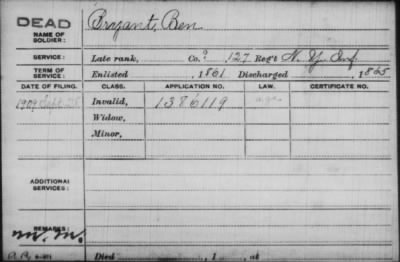 DEAD
NAME OF SOLDIER: Bryant, Ben
SERVICE: Late rank, Co. ? 127 Reg't N. Y. Inf.
TERM OF SERVICE: Enlisted , 1861 Discharged , 1865
DATE OF FILING. CLASS. APPLICATION NO. LAW. CERTIFICATE NO.
1909 Sept. 28 Invalid, 1386119
Widow,
Minor,
ADDITIONAL SERVICES:
REMARKS:
Died , 1 , at